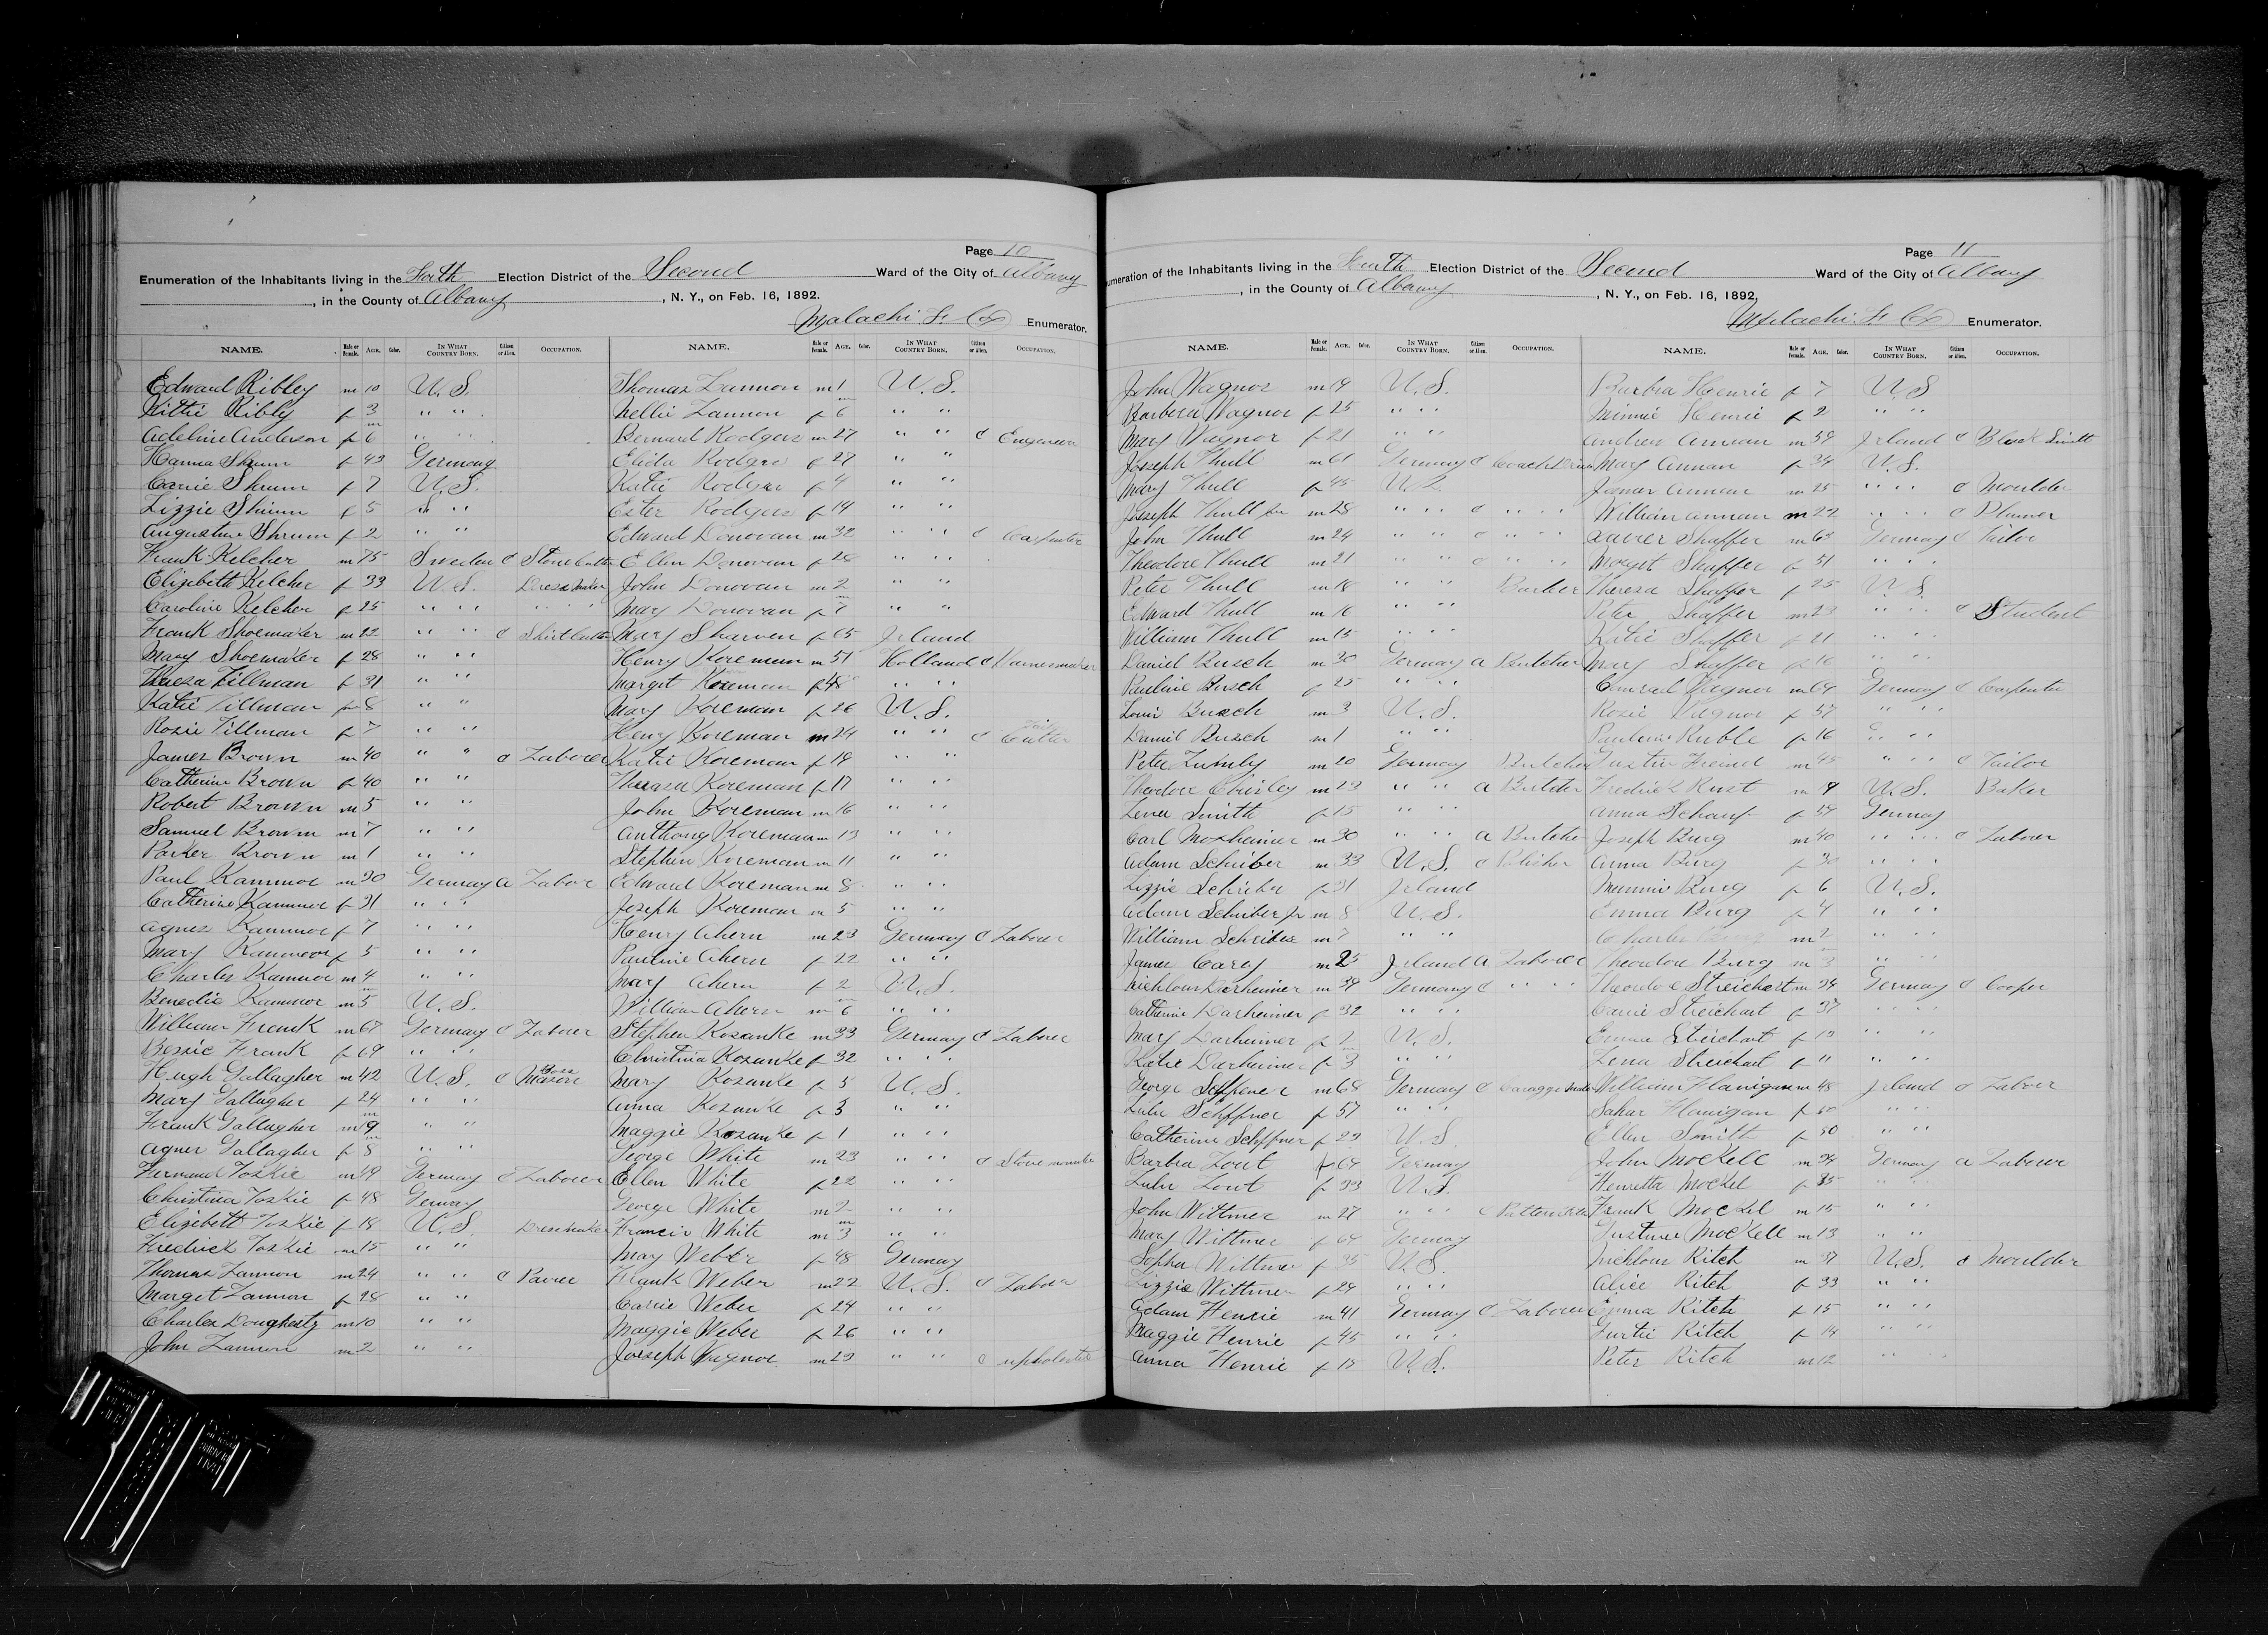 Page 10
Enumeration of the Inhabitants living in the Election District of the Second Ward of the City of Albany
, in the County of Albany, N. Y., on Feb. 16, 1892.
Malachi F. Cox Enumerator.
NAME. Male or Female. AGE. Color. IN WHAT COUNTRY BORN. Citizen or Alien. OCCUPATION.
Edward Ribley m 10 U.S.
Kittie Ribly f 3 " "
Adeline Anderson f 6 " "
Hanna Shrum f 43 Germany
Carrie Shrum f 7 U.S.
Lizzie Shrum f 5 " "
Augustine Shrum f 2 " "
Frank Kelcher m 75 Sweden C Stone Cutter
Elizebeth Kelcher f 33 U.S. Dress Maker
Caroline Kelcher f 25 " " " "
Frank Shoemaker m 22 " " C Shirt Cutter
Mary Shoemaker f 28 " "
Theresa Tillman f 31 " "
Katie Tillman f 8 " "
Rosie Tillman f 7 " "
James Brown m 40 " " C Laborer
Catherine Brown f 40 " "
Robert Brown m 5 " "
Samuel Brown m 7 " "
Parker Brown m 1 " "
Paul Kammor m 30 Germay a Labore
Catherine Kammor f 31 " "
Agnes Kammor f 7 " "
Mary Kammoor f 5 " "
Charles Kammor m 4 " "
Benedic Kammor m 5 U.S.
William Frank m 67 Germay C Laborer
Bessie Frank f 69 " "
Hugh Gallagher m 42 U.S. C Boss Mason
Mary Gallagher f 24 " "
Frank Gallagher m 9 " "
Agner Gallagher f 8 " "
Fernand Toskie m 49 Germay C Laborer
Christina Toskie f 48 Germay
Elizebett Toskie f 18 U.S. Dressmaker
Fredrick Toskie m 15 " "
Thomas Lannon m 24 " " C Paver
Marget Lannon f 28 " "
Charles Doughesty m 10 " "
John Lannon m 2 " "
NAME. Male or Female. AGE. Color. IN WHAT COUNTRY BORN. Citizen or Alien. OCCUPATION.
Thomas Lannon m 1 U.S.
Nellie Lannon f 6 " "
Bernard Rodgers m 27 " " C Engeneer
Elida Rodgers f 27 " "
Katie Rodger f 4 " "
Ester Rodgers f 14 " "
Edward Donovan m 32 " " C Carpenter
Ellen Donovan f 28 " "
John Donovan m 2 " "
Mary Donovan f 7 " "
Mary Sharven f 65 Irland
Henry Koreman m 51 Holland C Harnesmaker
Margit Koreman f 48 " "
Mary Koreman f 26 U.S.
Henry Koreman m 24 " " C Cutter
Katie Koreman f 19 " "
Thresa Koreman f 17 " "
John Koreman m 16 " "
Anthony Koreman m 13 " "
Stephen Koreman m 11 " "
Edward Koreman m 8 " "
Joseph Koreman m 5 " "
Henry Ahern m 23 Germany C Laborer
Pauline Ahern f 22 " "
Mary Ahern f 2 U.S.
William Ahern m 6 " "
Stephen Kosanke m 33 Germany C Laborer
Christina Kosanke f 32 " "
Mary Kosanke f 5 U.S.
Anna Kosanke f 3 " "
Maggie Kosanke f 1 " "
George White m 23 " " C Stove mounter
Ellen White f 22 " "
George White m 2 " "
Francis White m 3 " "
May Weber f 48 Germany
Frank Weber m 22 U.S. C Labore
Carrie Weber f 24 " "
Maggie Weber f 26 " "
Joeseph Wagnor m 29 " " C upholester
Page 11
Enumeration of the Inhabitants living in the Election District of the Second Ward of the City of Albany
, in the County of Albany, N. Y., on Feb. 16, 1892,
Malachi F. Cox Enumerator.
NAME. Male or Female. AGE. Color. IN WHAT COUNTRY BORN. Citizen or Alien. OCCUPATION.
John Wagnor m 19 U.S.
Barbera Wagnor f 25 " "
Mary Wagnor f 21 " "
Joseph Thull m 61 Germany C Coach Driver
Mary Thull f 45 U.S.
Joeseph Thull Jr m 28 " " C " "
John Thull m 24 " " C " "
Theodore Thull m 21 " " C " "
Peter Thull m 18 " " Barber
Edward Thull m 16 " "
William Thull m 15 " "
Daniel Busch m 30 Germay a Butcher
Pauline Busch f 25 " "
Louis Busch m 3 U.S.
Daniel Busch m 1 " "
Peter Zumly m 20 Germay Butcher
Theodore m 29 " " a Butcher
Lena Smith f 15 " "
Carl Mosheimer m 30 " " a Butcher
Adam Schriber m 33 U.S. C
Lizzie Schriber f 31 Irland
Adam Schriber Jr m 8 U.S.
William Schriber m 7 " "
James Carey m 25 Irland a Laborer
Nichlous Darheimer m 39 Germany C " "
Catherine Darheimer f 32 " "
Mary Darheimer f U.S.
Katie Darheimer f 3 " "
George Scffener m 68 Germany C
Lulu Scffner f 57 " "
Catherine Scffner f 29 U.S.
Barbra Zout f 64 Germay
Lulu Zout f 33 U.S.
John Wittmer m 27 " " C
Mary Wittmer f 64 Germay
Sopha Wittmer f 35 U.S.
Lizzie Wittmer f 24 " "
Adam Henrie m 41 Germay C Laborer
Maggie Henrie f 45 " "
Anna Henrie f 15 U.S.
NAME. Male or Female. AGE. Color. IN WHAT COUNTRY BORN. Citizen or Alien. OCCUPATION.
Barbra Henrie f 7 U.S
Minnie Henrie f 2 " "
Andrew Annan m 39 Irland C Black Smith
Mary Annan f 34 U.S.
James Annan m 25 " " C Moulder
William Annan m 22 " " C Plumer
Shaffer m 63 Germay C Tailor
Margit Shaffer f 51 " "
Theresa Shaffer f 25 U.S.
Peter Shaffer m 23 " " C Student
Katie Shaffer f 21 " "
Mary Shaffer f 16 " "
Conrad Wagnor m 64 Germay C Carpenter
Rosie Wagnor f 57 " "
Pauline Ruble f 16 " "
m 45 " " C Tailor
Fredrick Rust m 19 U.S. Baker
Anna Schauf f 54 Germay
Joseph Burg m 40 " " C Laborer
Anna Burg f 30 " "
Mummie Burg f 6 U.S.
Emma Burg f 4 " "
Charles m 2 " "
Theodore Burg m 3 " "
Theodoe Streichert m 34 Germay C Cooper
Carrie Streichart f 37 " "
Emma Streichart f 13 " "
Lena Streichart f 11 " "
William Flanigan m 48 Irland C Laborer
Sahar Flanigan f 50 " "
Ellen Smith f 50 " "
John Mockell m 34 Germay a Laborer
Henretta Mockel f 35 " "
Frank Mockel m 15 " "
Mockell m 13 " "
Nichlous Ritch m 37 U.S. C Moulder
Alice Ritch f 33 " "
Emma Ritch f 15 " "
Gurtie Ritch f 14 " "
Peter Ritch m 12 " "